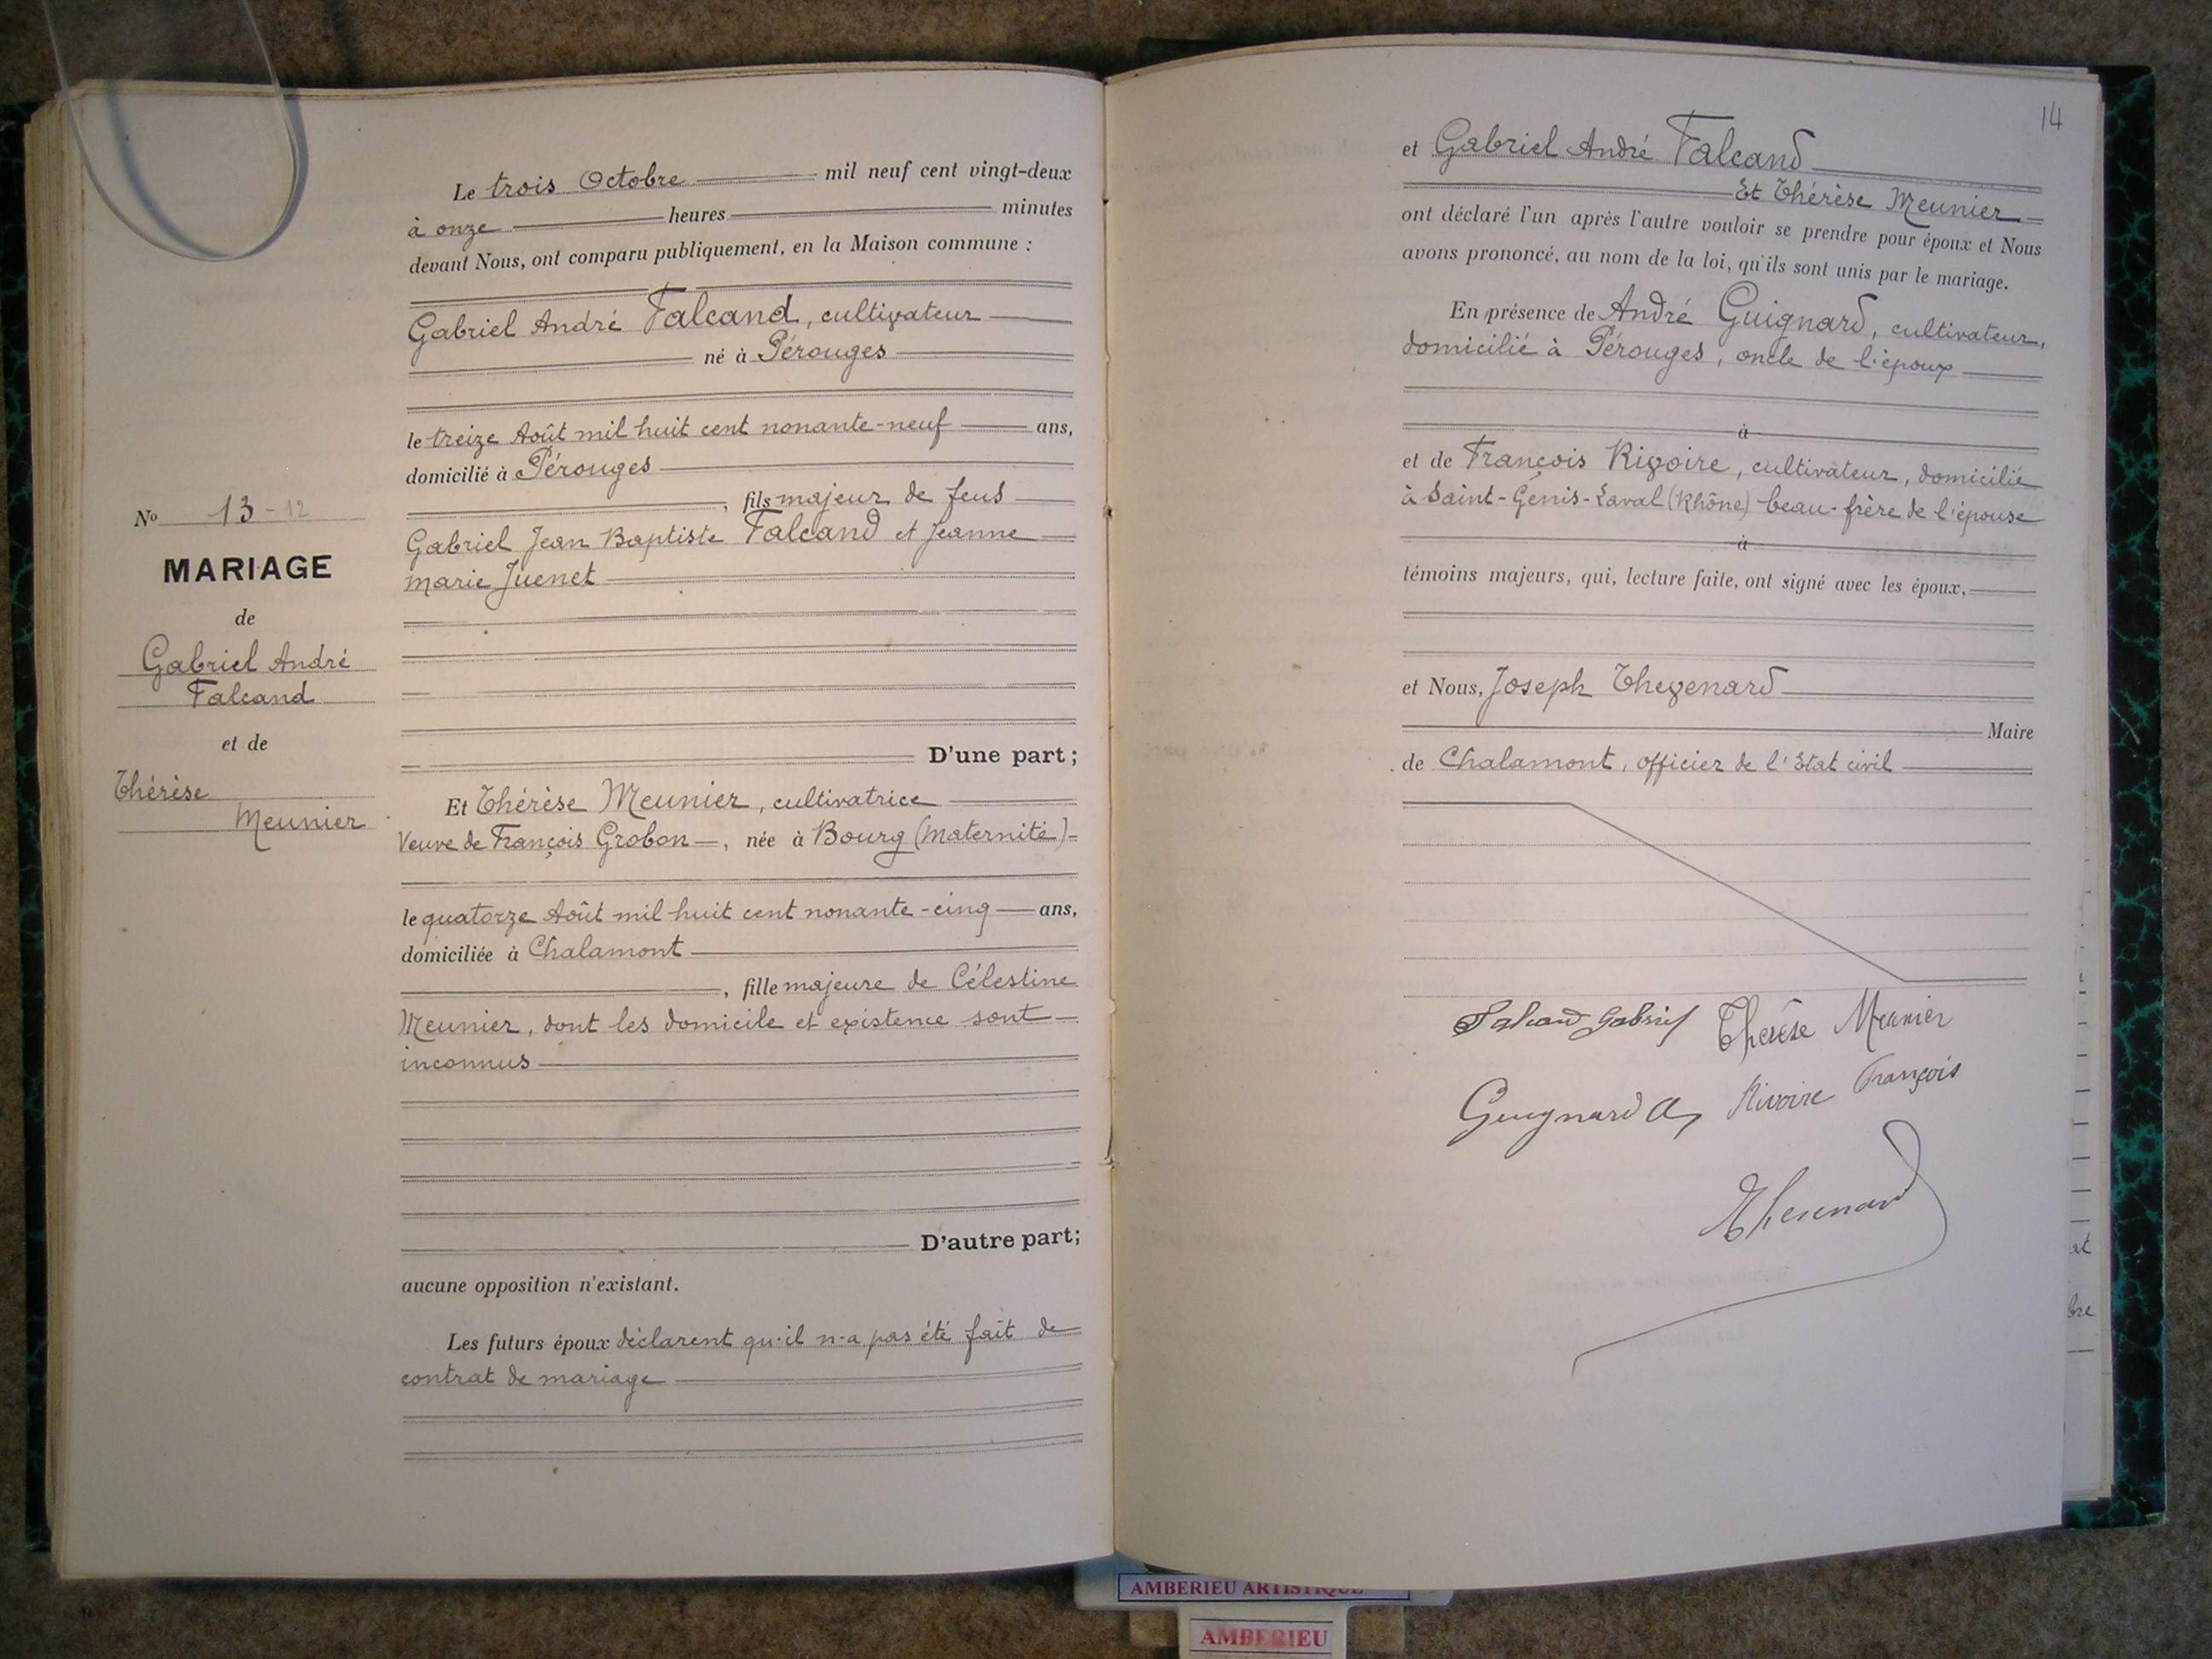 Le trois Octobre mil neuf cent vingt-deux
à onze heures minutes
devant Nous, ont comparu publiquement, en la Maison commune :
Gabriel André Falcand, cultivateur
né à Pérouges
le treize Août mil huit cent nonante-neuf ans,
domicilié à Pérouges
, fils majeur de feus
Gabriel Jean Baptiste Falcand et Jeanne
marie Juenet
D'une part ;
Et Thérèse Meunier, cultivatrice
Veuve de François Grobon, née à Bourg (Maternité)
le quatorze Août mil huit cent nonante-cinq ans,
domiciliée à Chalamont
, fille majeure de Célestine
Meunier, dont les domicile et existence sont
inconnus
D'autre part;
aucune opposition n'existant.
Les futurs époux déclarent qu'il n'a pas été fait de
contrat de mariage
No 13-12
MARIAGE
de
Gabriel André
Falcand
et de
Thérèse
Meunier
14
et Gabriel André Falcand
Et Thérèse Meunier
ont déclaré l'un après l'autre vouloir se prendre pour époux et Nous
avons prononcé, au nom de la loi, qu'ils sont unis par le mariage.
En présence de André Guignard, cultivateur,
domicilié à Pérouges, oncle de l'époux
à
et de François Rivoire, cultivateur, domicilié
à Saint-Génis-Laval (Rhône) beau-frère de l'épouse
à
témoins majeurs, qui, lecture faite, ont signé avec les époux,
et Nous, Joseph Thevenard
Maire
de Chalamont, officier de l'Etat civil
Falcand Gabriel Thérèse Meunier
Guignard A Rivoire François
Thevenard
at
bre
AMBERIEU ARTISTIQUE
AMBERIEU